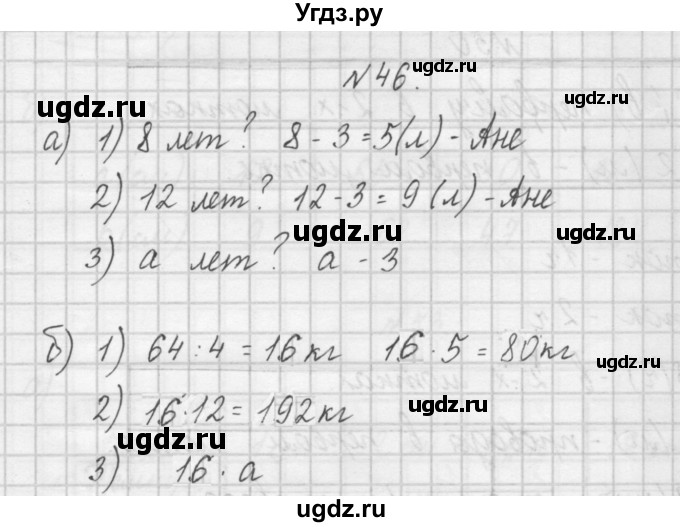 Угдз.ру
№46.
ugdz.ru
ugdz.ru
а) 1) 8 лет? 8 - 3 = 5(л) - Ане
ugdz.ru
2) 12 лет? 12 - 3 = 9 (л) - Ане
ugdz.ru
ugdz.ru
3) а лет? а - 3
б) 1) 64 : 4 = 16 кг 16 · 5 = 80 кг
ugdz.ru
2) 16 · 12 = 192 кг
ugdz.ru
ugdz.ru
3) 16 · а
ugdz.ru
ugdz.ru